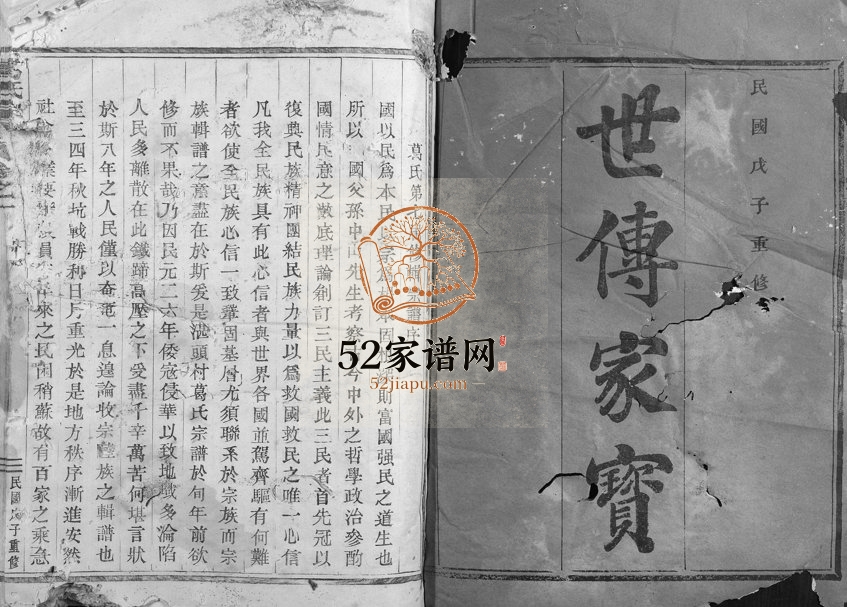 民國戊子重修
世傳家寶
葛氏第
國以民爲本民
則富國强民之道生也
所以 國父孫中山先生考察
今中外之哲學政治參酌
國情民意之徹底理論創訂三民主義此三民者首先冠以
復興民族精神團結民族力量以爲救國救民之唯一心信
凡我全民族具有此心信者與世界各國並駕齊驅有何難
者欲使全民族心信一致鞏固基層尤須聯系於宗族而宗
族輯譜之意盡在於斯爰是泄頭村葛氏宗譜於旬年前欲
修而不果哉乃因民元二六年倭寇侵華以致地域多淪陷
人民多離散在此鐵蹄高壓之下受盡千辛萬苦何堪言狀
於斯八年之人民僅以奄奄一息遑論收宗睦族之輯譜也
至三四年秋抗戰勝利日月重光於是地方秩序漸進安然
社會
員
來之民困稍蘇故有百家之乘急
民國戊子重修
52家谱网
52jiapu.com